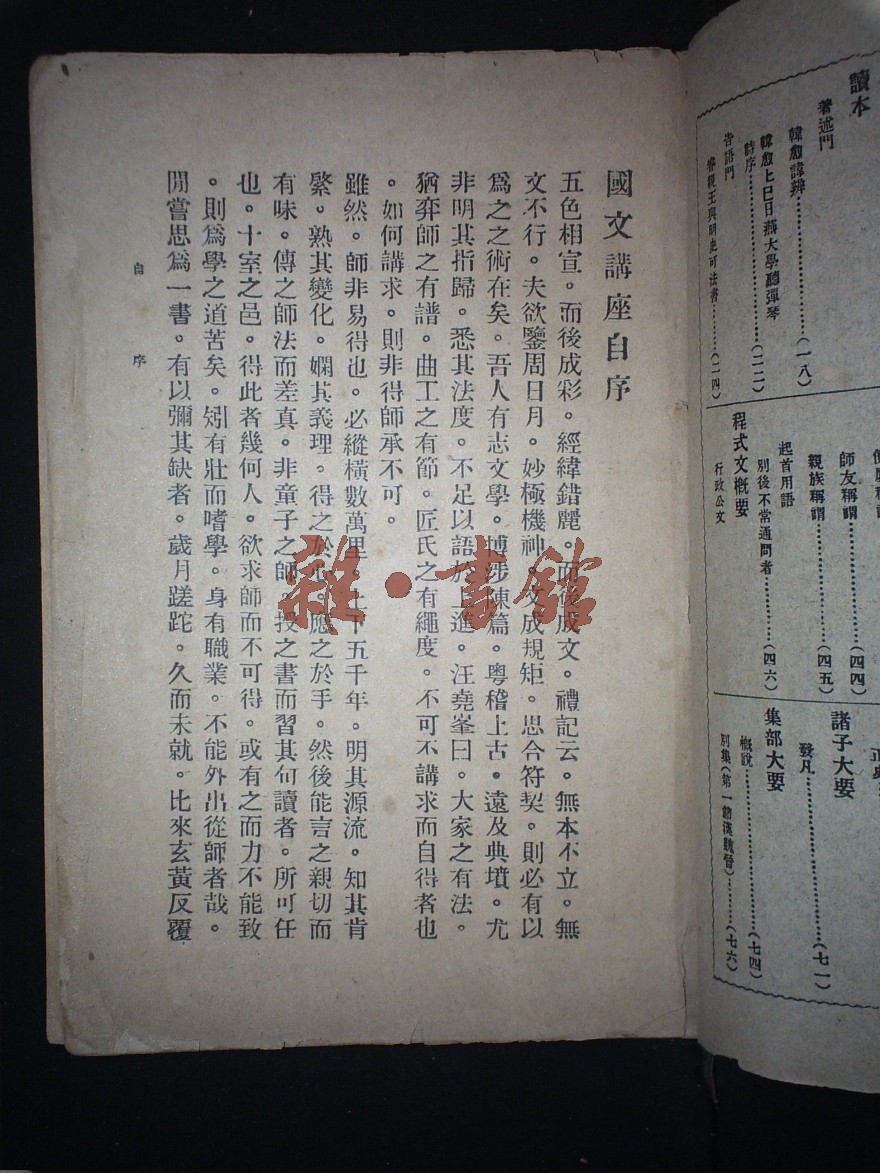 讀本
著述門
韓愈諱辨…………(一八)
韓愈上巳日燕大學聽彈琴
詩序…………(二二)
告語門
睿親王與明史可法書…………(二四)
師友稱謂…………(四四)
親族稱謂…………(四五)
起首用語
別後不常通問者…………(四六)
程式文概要
行政公文
諸子大要
發凡…………(七一)
集部大要
概說…………(七四)
別集(第一節漢魏晉)…………(七六)
國文講座自序
五色相宣。而後成彩。經緯錯麗。而後成文。禮記云。無本不立。無
文不行。夫欲鑒周日月。妙極機神。文成規矩。思合符契。則必有以
爲之之術在矣。吾人有志文學。博涉陳篇。粵稽上古。遠及典墳。尤
非明其指歸。悉其法度。不足以語於上進。汪堯峯曰。大家之有法。
猶弈師之有譜。曲工之有節。匠氏之有繩度。不可不講求而自得者也
。如何講求。則非得師承不可。
雖然。師非易得也。必縱橫數萬里。上下五千年。明其源流。知其肯
綮。熟其變化。嫻其義理。得之於心。應之於手。然後能言之親切而
有味。傳之師法而差真。非童子之師。授之書而習其句讀者。所可任
也。十室之邑。得此者幾何人。欲求師而不可得。或有之而力不能致
。則爲學之道苦矣。矧有壯而嗜學。身有職業。不能外出從師者哉。
閒嘗思爲一書。有以彌其缺者。歲月蹉跎。久而未就。比來玄黃反覆
自序
雜·書館